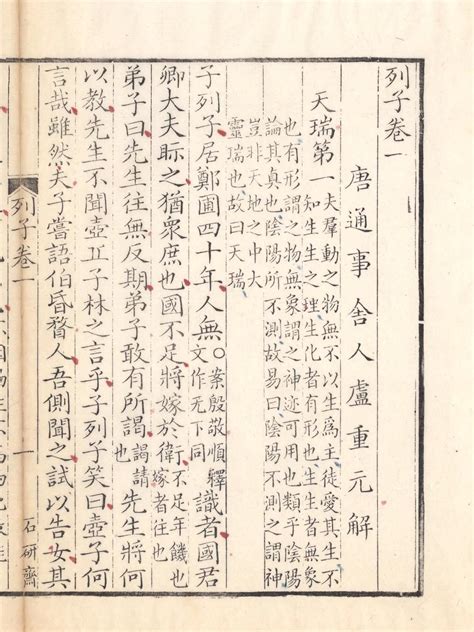 列子卷一
唐通事舍人盧重元解
天瑞第一
夫羣動之物無不以生爲主徒愛其生不
知生生之理生化者有形也生生者無象
也有形謂之物無象謂之神迹可用也類乎陰陽
論其真也陰陽所不測故易曰陰陽不測之謂神
豈非天地之中大
靈瑞也故曰天瑞
子列子居鄭圃四十年人無○案殷敬順釋文作无下同識者國君
卿大夫眎之猶衆庶也國不足將嫁於衛不足年饑也嫁者往也
弟子曰先生往無反期弟子敢有所謁謁請也先生將何
以教先生不聞壺丘子林之言乎子列子笑曰壺子何
言哉雖然夫子嘗語伯昏瞀人吾側聞之試以告女其
列子卷一
一
石研齋